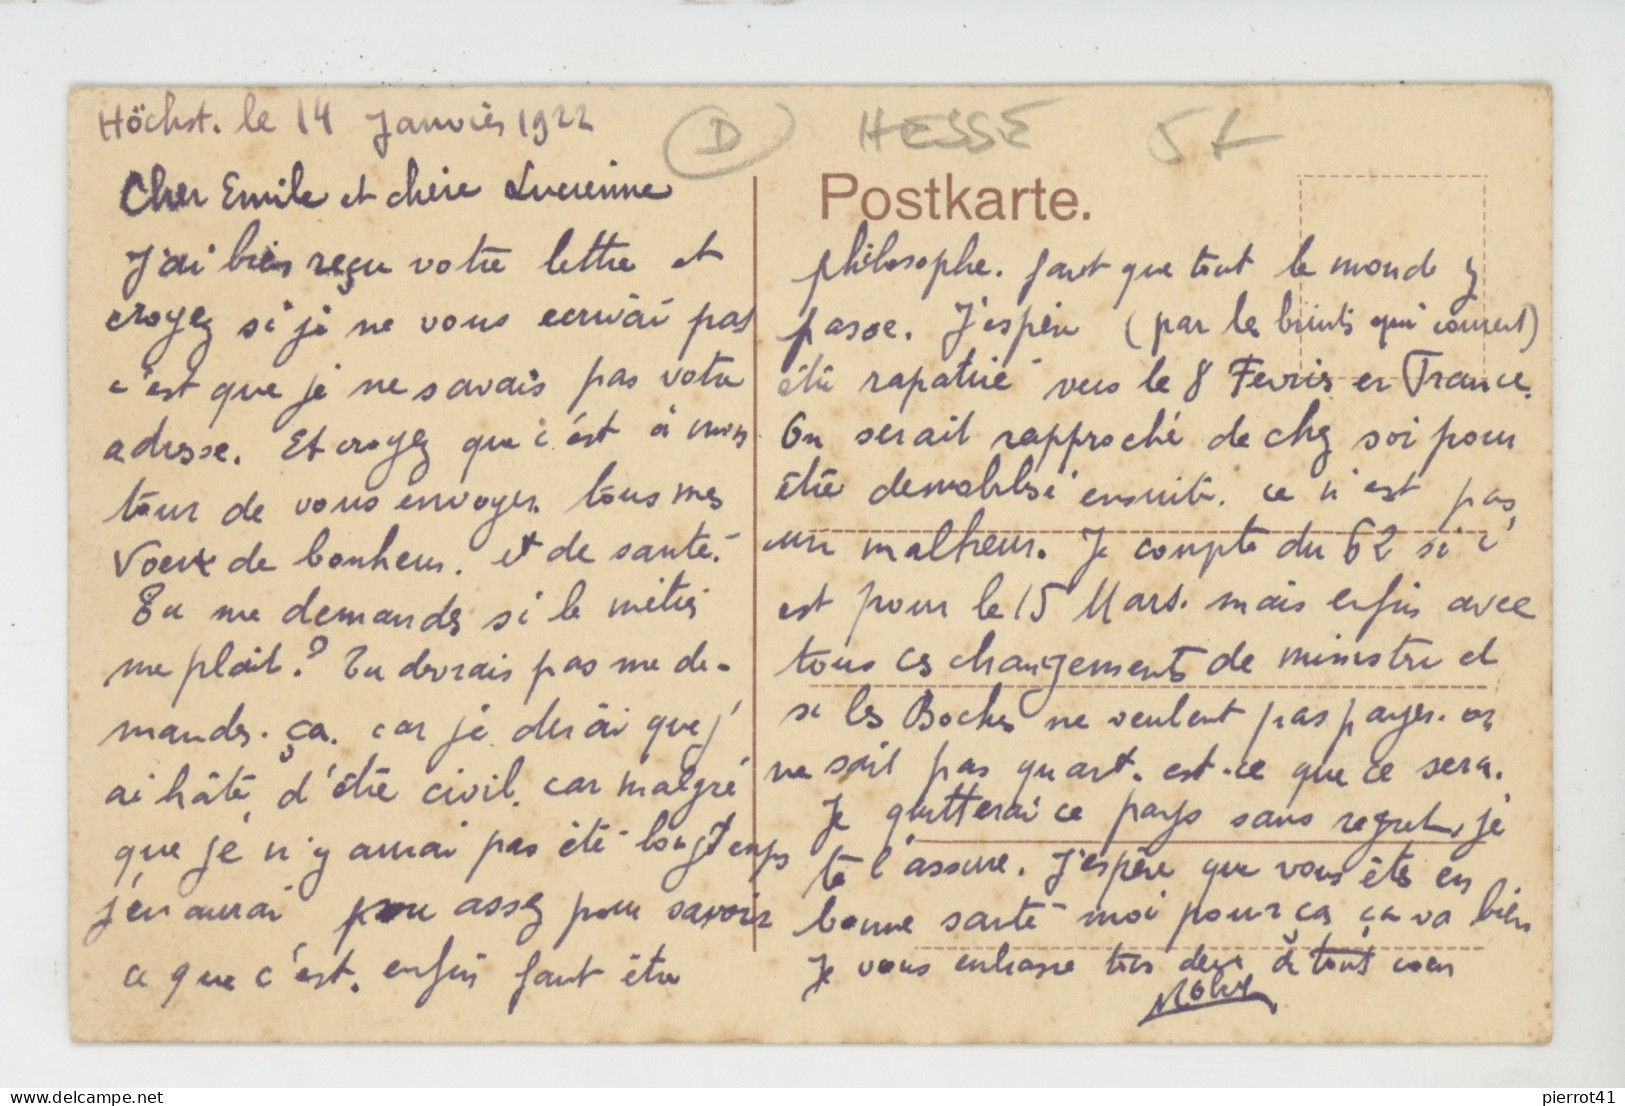 Höchst. le 14 Janvier 1922
D HESSE 5f
Cher Emile et chère Lucienne
J'ai bien reçu votre lettre et
croyez si je ne vous ecrivai pas
c'est que je ne savais pas votre
adresse. Et croyez que c'est à mon
tour de vous envoyer tous mes
Voeux de bonheur. et de santé.
Tu me demandes si le métier
me plait? Tu devrais pas me de-
mander. ça. car je dirai que j'
ai hâte d'être civil. car malgré
que je n'y aurai pas été longtemps
j'en aurai assez pour savoir
ce que c'est. enfin faut être
Postkarte.
philosophe. faut que tout le monde y
passe. J'espère (par les bruits qui courent)
être rapatrié vers le 8 Fevrier en France.
On serait rapproché de chez soi pour
être demobilisé ensuite. ce n'est pas
un malheur. Je compte du 62 si c'
est pour le 15 Mars. mais enfin avec
tous ces changements de ministre et
si les Boches ne veulent pas payer. on
ne sait pas quart. est-ce que ce sera.
Je quitterai ce pays sans regret, je
te l'assure. J'espère que vous êtes en
bonne santé moi pour ça ça va bien
Je vous embrasse tous deux de tout coeur
pierrot41